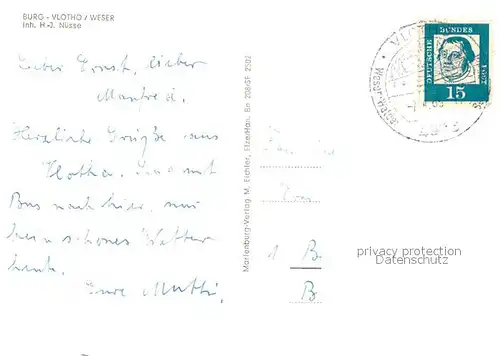 BURG - VLOTHO / WESER
Inh. H.-J. Nüsse
Lieber Ernst, lieber
Manfred.
Herzliche Grüße aus
Vlotho. Sind mit
Bus nach hier, nur
kein schönes Wetter
heute.
Eure Mutti.
Marienburg-Verlag M. Eichler, Elze/Han. Bn 208/GF 2502
VLOTHO
DEUTSCHE BUNDESPOST
15
1 B
B
privacy protection
Datenschutz